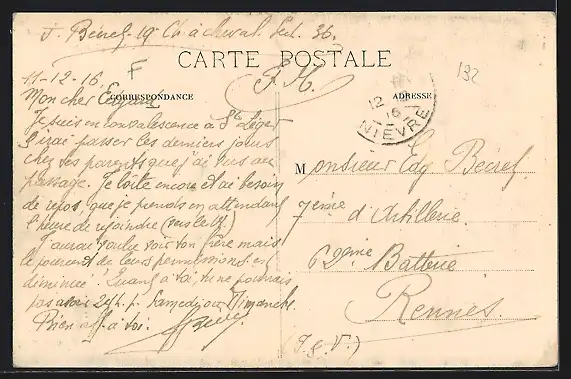 J. Bécref 19e Ch à cheval. Sect. 36.
CARTE POSTALE
F
F. M.
132
11-12-16
CORRESPONDANCE
ADRESSE
12
16
NIEVRE
Mon cher
Je suis en convalescence à St Léger
J'irai passer ces derniers jours
chez tes parents que j'ai vus au
passage. Je boîte encore et ai besoin
de repos, que je prends en attendant
l'heure de rejoindre (vers le
J'aurai voulu voir ton frère mais
le pourcent de leurs permissions est
diminué. Quant à toi, tu ne pourrais
pas avoir 24h. p. Samedi ou Dimanche.
Bien aff. à toi.
Monsieur Edg Bécref
7ème d'Artillerie
62ème Batterie
Rennes
(I. & V.)